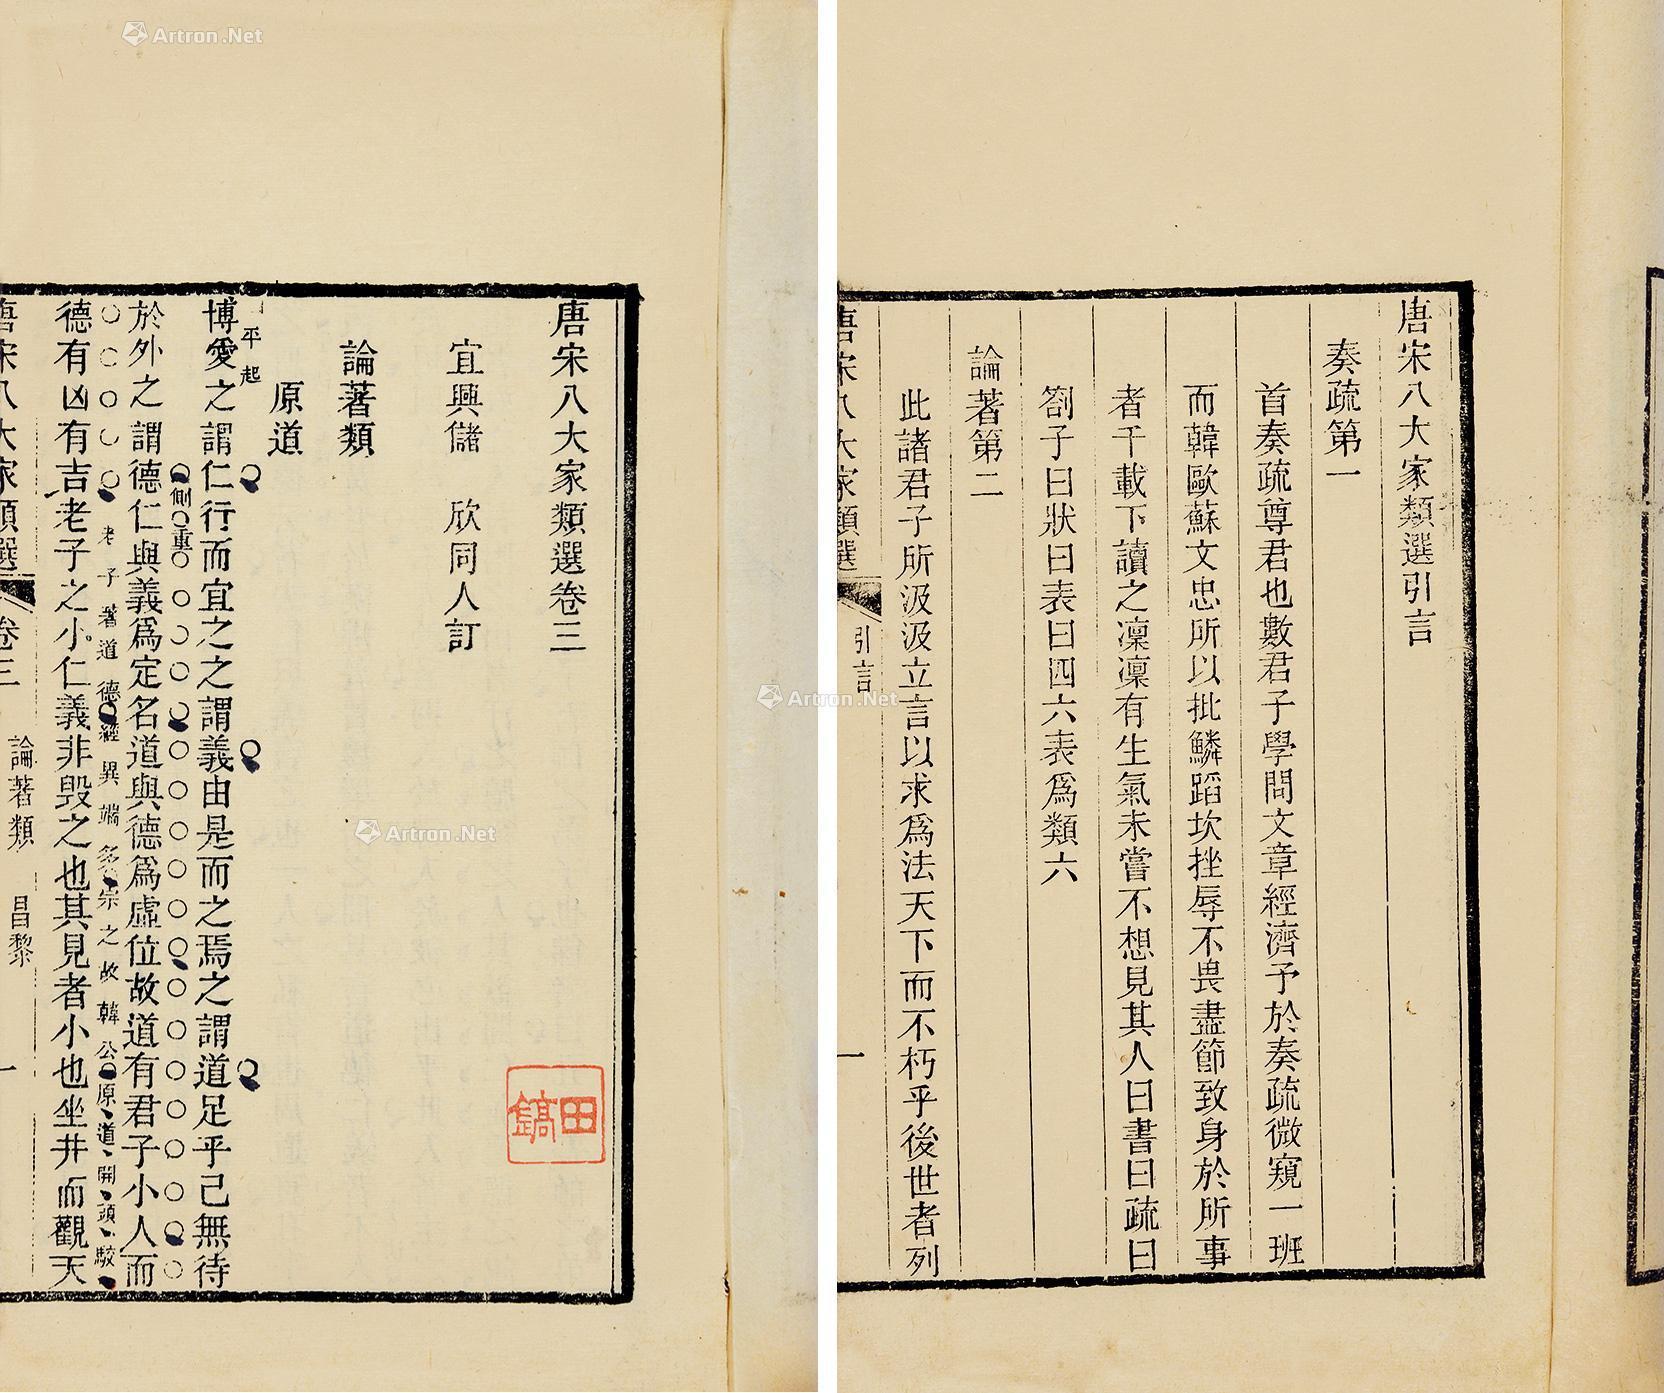 唐宋八大家類選引言
奏疏第一
首奏疏尊君也數君子學問文章經濟予於奏疏微窺一班
而韓歐蘇文忠所以批鱗蹈坎挫辱不畏盡節致身於所事
者千載下讀之凜凜有生氣未嘗不想見其人曰書曰疏曰
劄子曰狀曰表曰四六表爲類六
論著第二
此諸君子所汲汲立言以求爲法天下而不朽乎後世者列
唐宋八大家類選 引言 一
唐宋八大家類選卷三
宜興儲 欣同人訂
論著類
原道
平起
博愛之謂仁行而宜之之謂義由是而之焉之謂道足乎己無待
側重
於外之謂德仁與義爲定名道與德爲虛位故道有君子小人而
老子著道德經異端多宗之故韓公原道開頭駁
德有凶有吉老子之小仁義非毀之也其見者小也坐井而觀天
唐宋八大家類選 卷三 論著類 昌黎 一
田鎬
Artron.Net
Artron.Net
Artron.Net